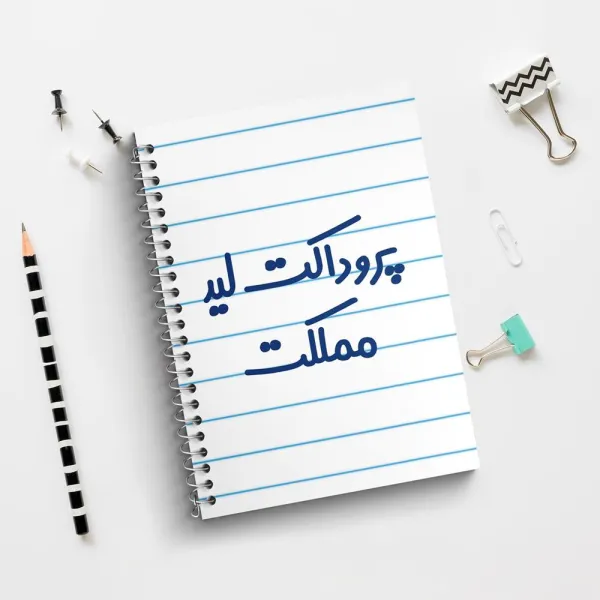 پروداکت لید
مملکت